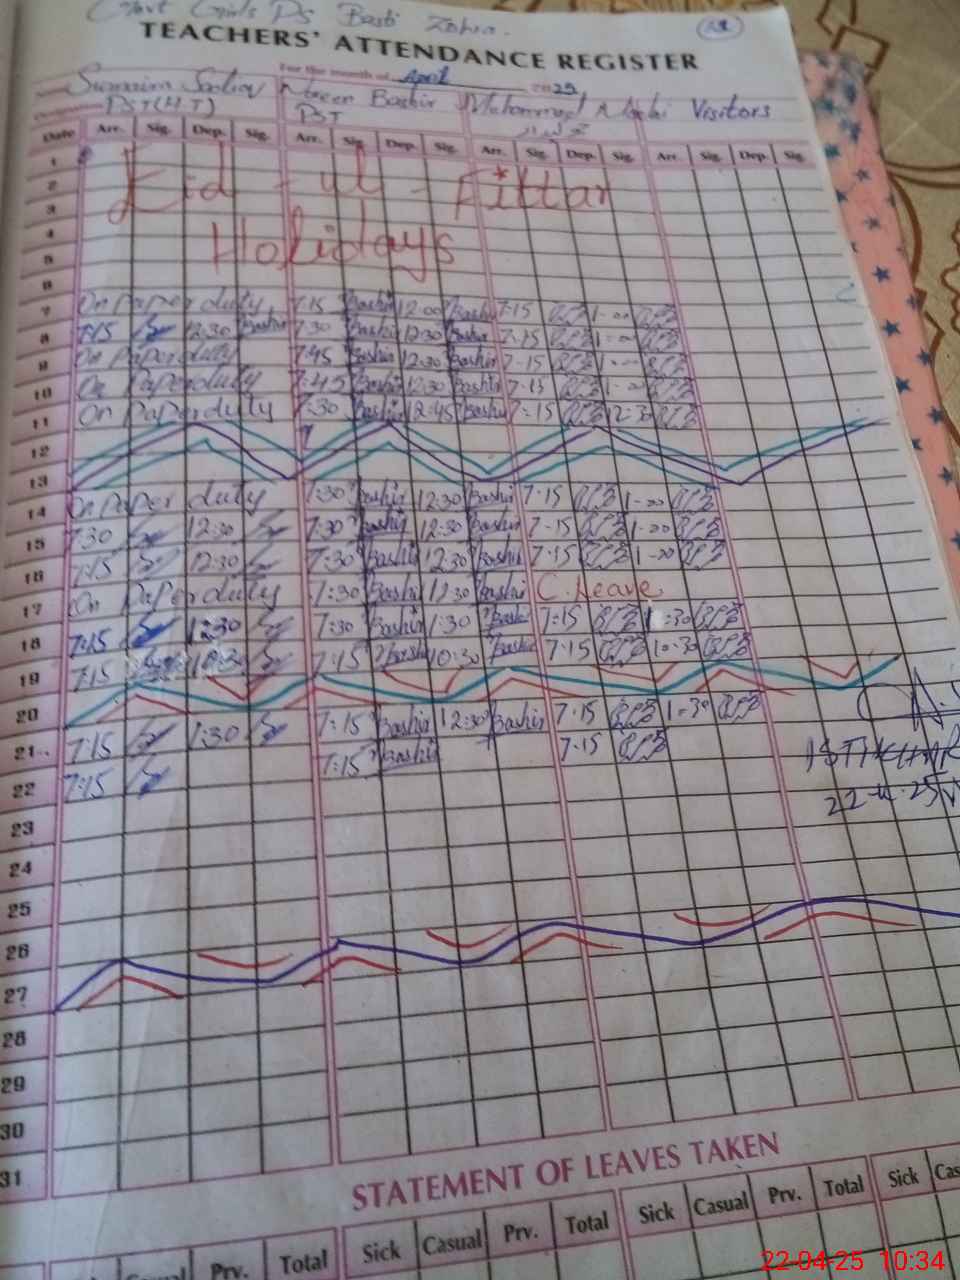 Govt Girls PS Basti Zohra.
TEACHERS' ATTENDANCE REGISTER
For the month of April 2025
Bashir Muhammad Visitors
PST(H.T) PST
Date Arr. Sig. Dep. Sig. Arr. Sig. Dep. Sig. Arr. Sig. Dep. Sig. Arr. Sig. Dep. Sig.
1
2 Eid - ul - Fittar
3
4 Holidays
5
6
7 On Paper duty 7:15 Bashir 12:00 Bashir 7-15 1-00
8 7:15 12:30 Bashir 7:30 Bashir 12:30 Bashir 7-15 1-00
9 On Paper duty 7:45 Bashir 12:30 Bashir 7-15 1-00
10 On Paper duty 7:45 Bashir 12:30 Bashir 7-15 1-00
11 On Paper duty 7:30 Bashir 12:45 Bashir 7-15 12-30
12
13
14 On Paper duty 7:30 Bashir 12:30 Bashir 7-15 1-00
15 7:30 12:30 7:30 Bashir 12:30 Bashir 7-15 1-00
16 7:15 12:30 7:30 Bashir 12:30 Bashir 7-15 1-00
17 On Paper duty 7:30 Bashir 12:30 Bashir C. Leave
18 7:15 7:30 Bashir 1:30 Bashir 7-15
19 7:15 10:30 7:15 Bashir 10:30 Bashir 7-15 10-30
20
21 7:15 1:30 7:15 Bashir 12:30 Bashir 7-15 1-30
22 7:15 7:15 Bashir 7-15
22-4-25
23
24
25
26
27
28
29
30
31
STATEMENT OF LEAVES TAKEN
Casual Prv. Total Sick Casual Prv. Total Sick Casual Prv. Total Sick
22-04-25 10:34